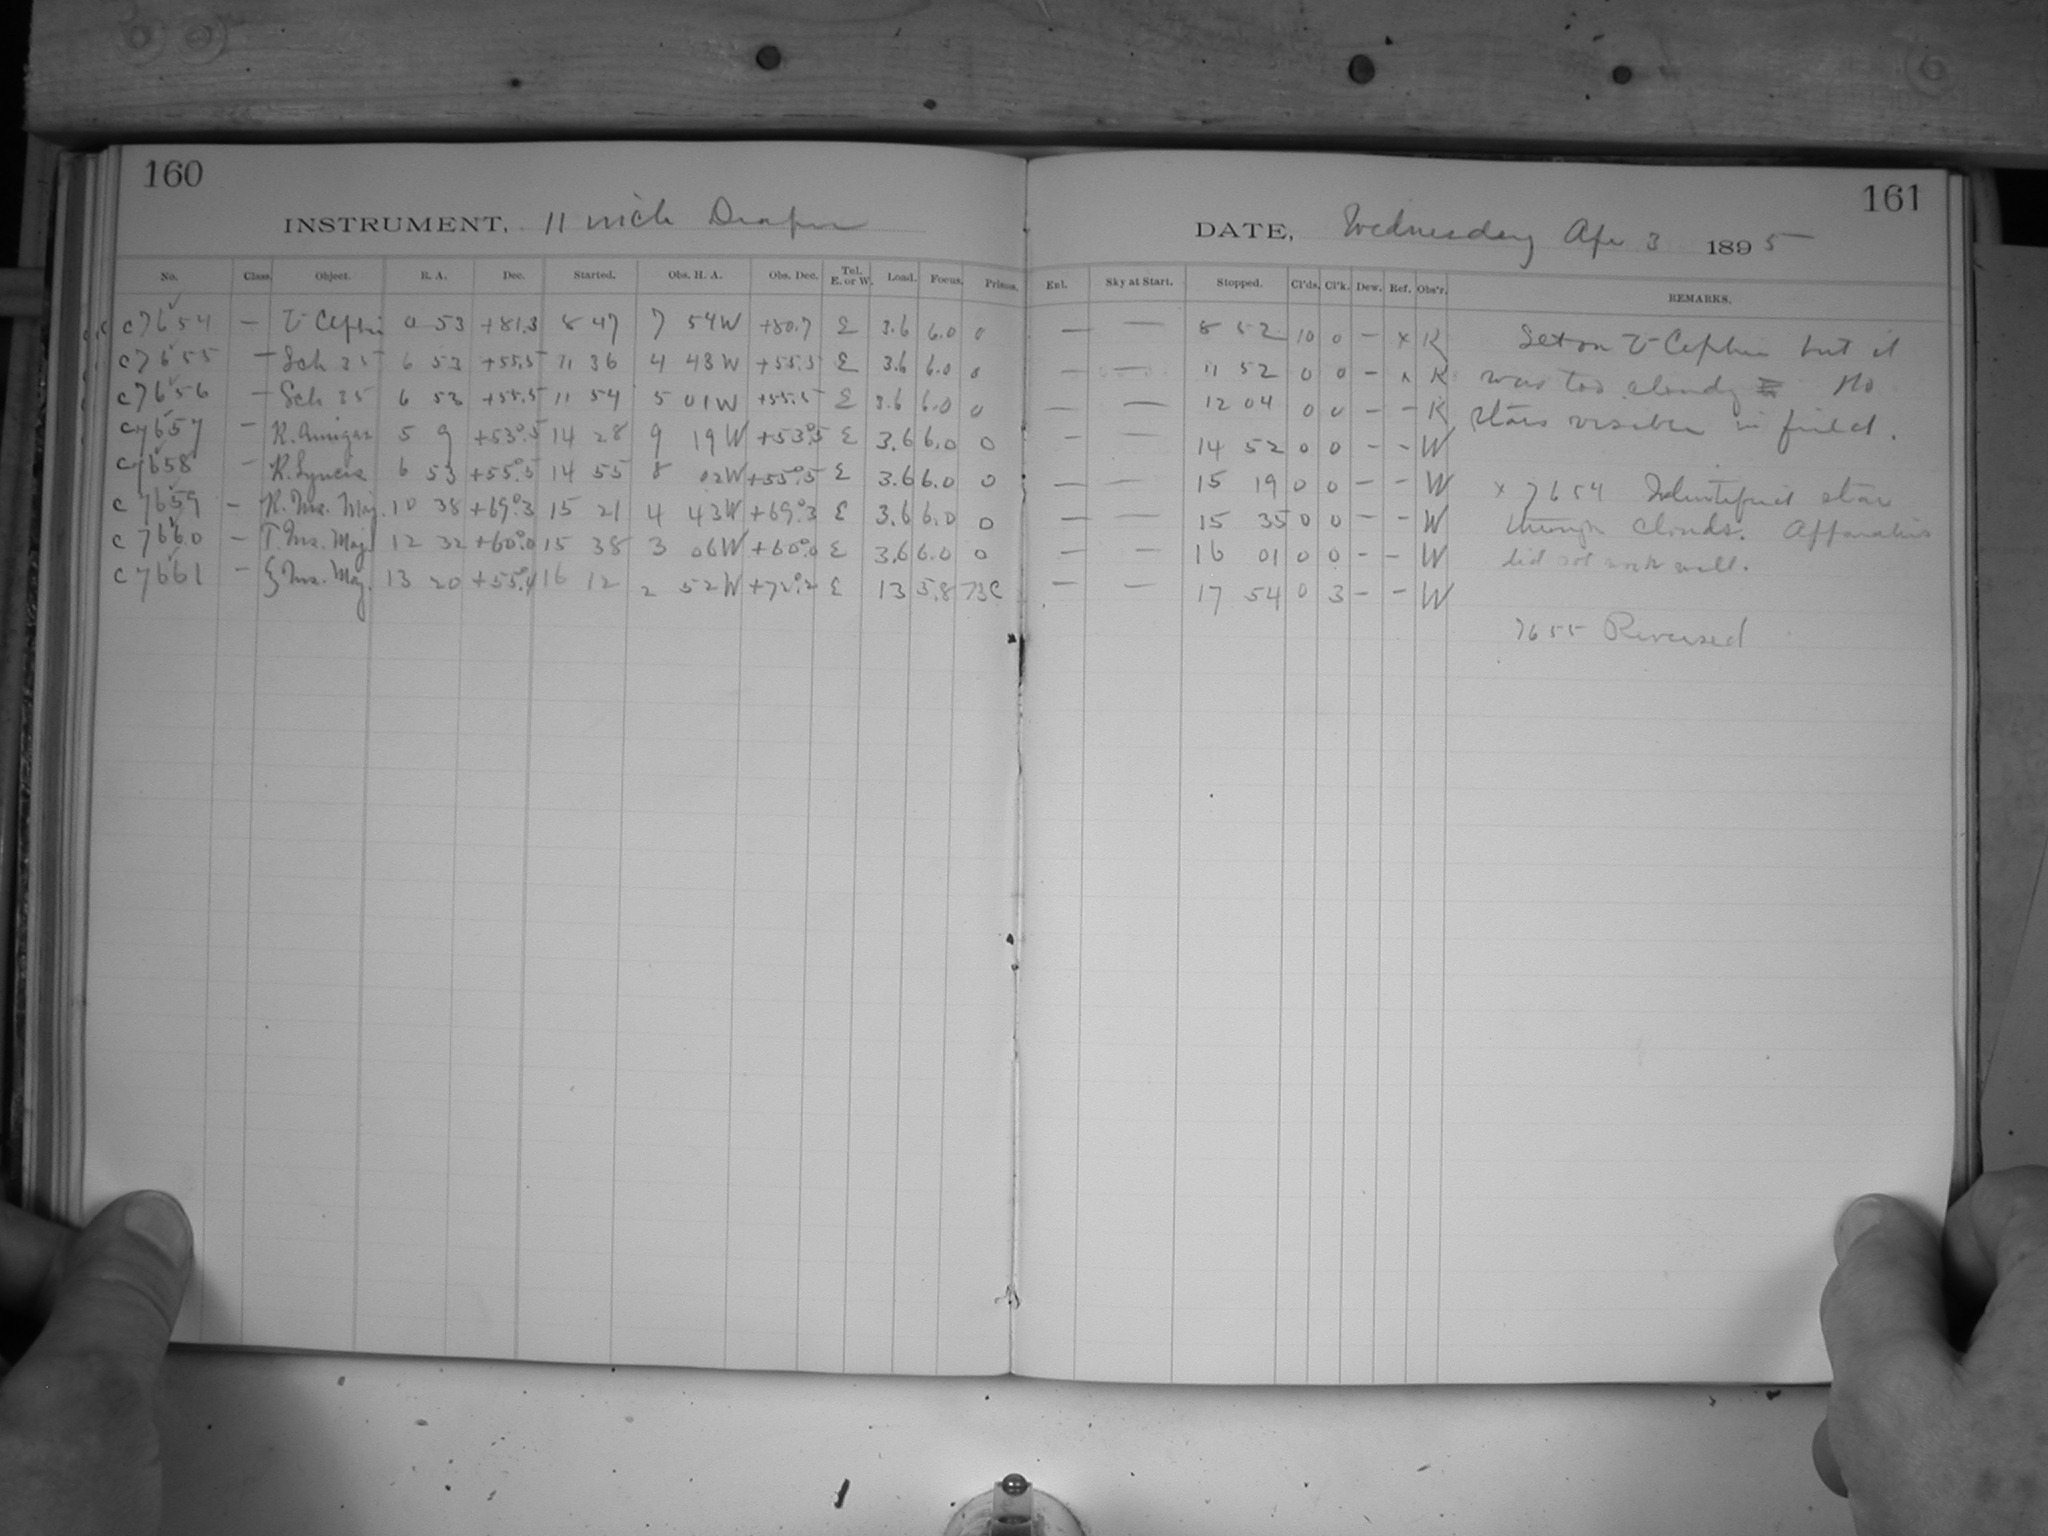 160
INSTRUMENT, 11 inch Draper
No. Class. Object. R. A. Dec. Started. Obs. H. A. Obs. Dec. Tel. E. or W. Load. Focus. Prisms.
c7654 — U Cephei 0 53 +81.3 8 47 7 54W +80.7 E 3.6 6.0 0
c7655 — Sch 35 6 53 +55.5 11 36 4 43W +55.5 E 3.6 6.0 0
c7656 — Sch 35 6 53 +55.5 11 54 5 01W +55.5 E 3.6 6.0 0
c7657 — R. Aurigae 5 9 +53°.5 14 28 9 19W +53°.5 E 3.6 6.0 0
c7658 — R. Lyncis 6 53 +55°.5 14 55 8 02W +55°.5 E 3.6 6.0 0
c7659 — R. Urs. Maj. 10 38 +69°.3 15 21 4 43W +69°.3 E 3.6 6.0 0
c7660 — T. Urs. Maj. 12 32 +60°.0 15 38 3 06W +60°.0 E 3.6 6.0 0
c7661 — ζ Urs. Maj. 13 20 +55°.4 16 12 2 52W +72°.2 E 13 5.8 73C
161
DATE, Wednesday Apr 3 1895
Enl. Sky at Start. Stopped. Cl'ds. Cl'k. Dew. Ref. Obs'r. REMARKS.
— — 8 52 10 0 — x K
— — 11 52 0 0 — x K
— — 12 04 0 0 — — K
— — 14 52 0 0 — — W
— — 15 19 0 0 — — W
— — 15 35 0 0 — — W
— — 16 01 0 0 — — W
— — 17 54 0 3 — — W
Set on U Cephei but it
was too cloudy No
stars visible in field.
x 7654 Identified star
through clouds. Apparatus
did not work well.
7655 Reversed